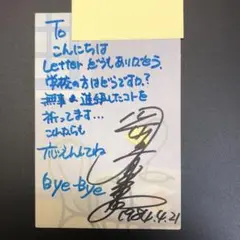 To
こんにちは
Letter どうもありがとう。
学校の方はどうですか?
無事 進級したコトを
祈ってます...
これからも
応えんしてね
Bye-Bye
1984.4.21